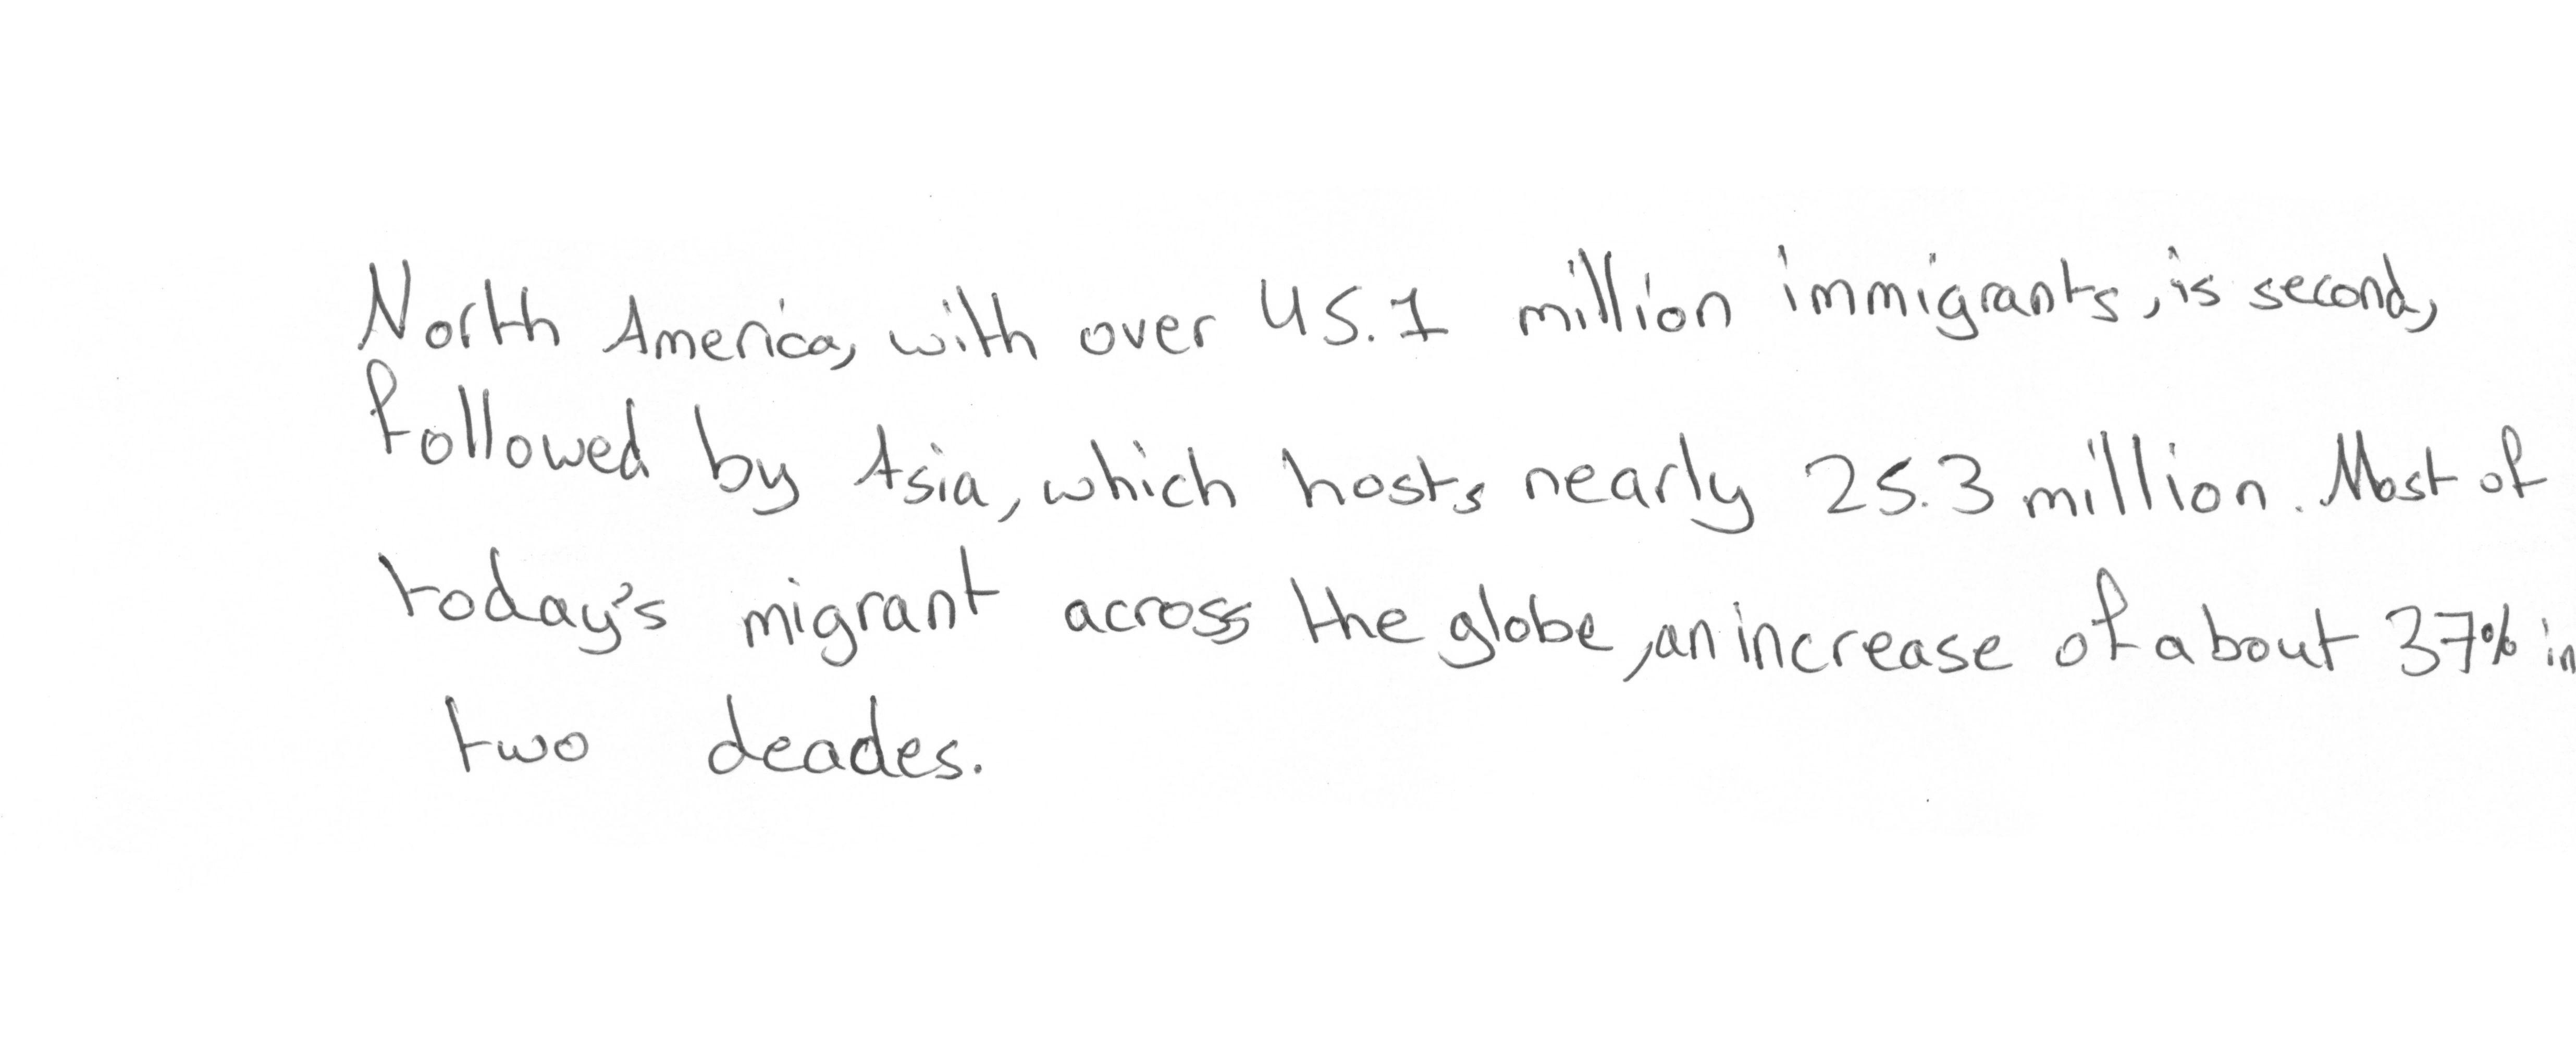 North America, with over 45.1 million immigrants, is second,
followed by Asia, which hosts nearly 25.3 million. Most of
today's migrant across the globe, an increase of about 37% in
two deades.